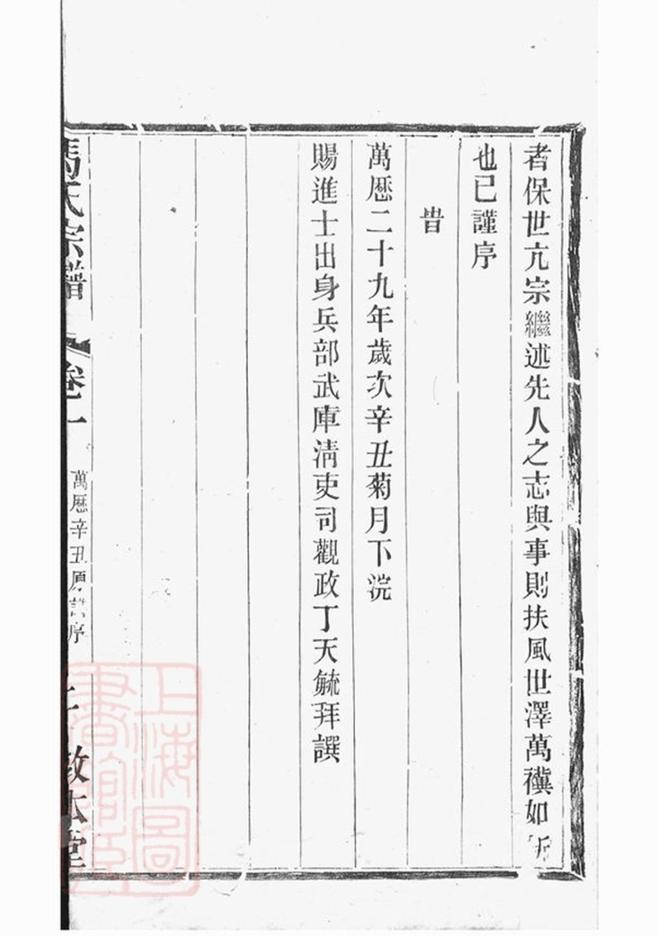 者保世亢宗繼述先人之志與事則扶風世澤萬禩如新
也已謹序
旹
萬厯二十九年歲次辛丑菊月下浣
賜進士出身兵部武庫淸吏司觀政丁天毓拜譔
馬氏宗譜
卷一
萬厯辛丑原譜序
敦本堂
上海圖書館藏